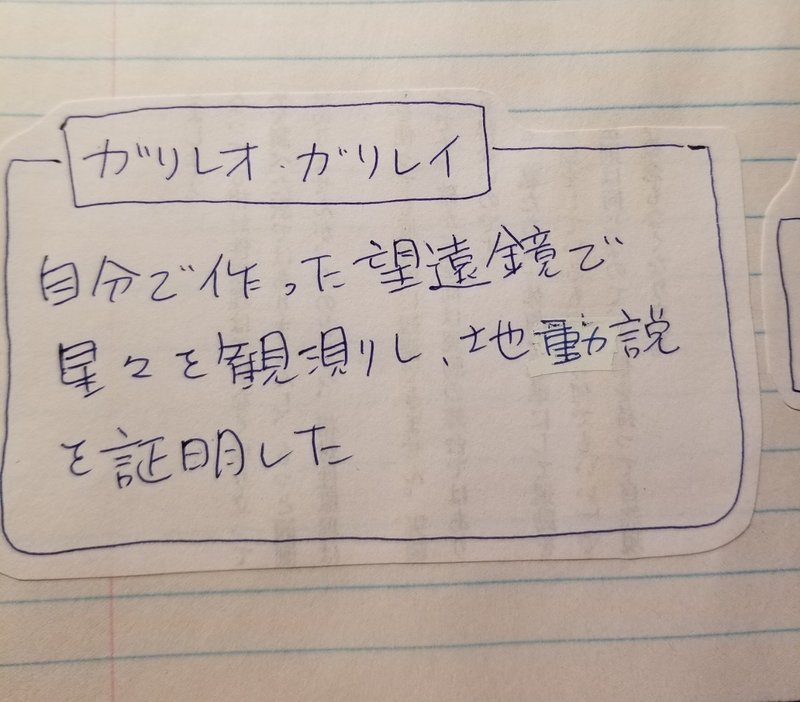 ガリレオ・ガリレイ
自分で作った望遠鏡で
星々を観測し、地動説
を証明した